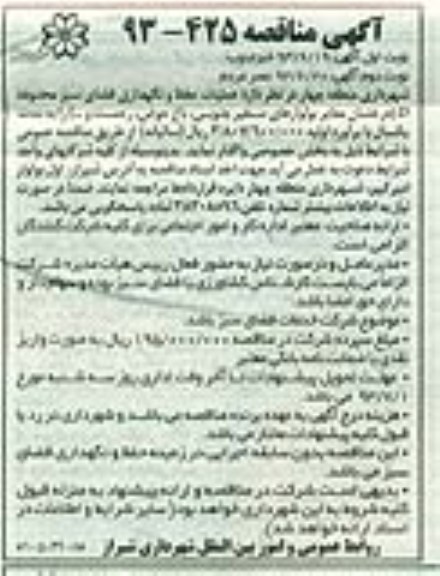 آگهی مناقصه ۴۲۵ – ۹۳
نوبت اول آگهی
نوبت دوم آگهی
شهرداری منطقه چهار در نظر دارد عملیات حفظ و نگهداری فضای سبز محدوده
یکسال با برآورد اولیه ریال از طریق مناقصه عمومی
با شرایط ذیل به بخش خصوصی واگذار نماید. بدینوسیله از کلیه شرکتهای واجد
شرایط دعوت به عمل می آید جهت اخذ اسناد مناقصه به آدرس شیراز اول بولوار
امیرکبیر شهرداری منطقه چهار دایره قراردادها مراجعه نمایند. ضمناً در صورت
نیاز به اطلاعات بیشتر شماره تلفن آماده پاسخگویی می باشد.
• ارائه صلاحیت معتبر اداره کار و امور اجتماعی برای کلیه شرکت کنندگان
الزامی است.
• مدیرعامل و در صورت نیاز به حضور فعال رییس هیات مدیره شرکت
الزاما می بایست کارشناس کشاورزی یا فضای سبز بوده و
دارای حق امضا باشد.
• موضوع شرکت خدمات فضای سبز باشد.
• مبلغ سپرده شرکت در مناقصه ۱۹۵/۰۰۰/۰۰۰ ریال به صورت واریز
نقدی یا ضمانت نامه بانکی معتبر
• مهلت تحویل پیشنهادات تا آخر وقت اداری روز سه شنبه مورخ
می باشد.
• هزینه درج آگهی به عهده برنده مناقصه می باشد و شهرداری در رد یا
قبول کلیه پیشنهادات مختار می باشد.
• این مناقصه بدون سابقه اجرایی در زمینه حفظ و نگهداری فضای
سبز می باشد.
• بدیهی است شرکت در مناقصه و ارائه پیشنهاد به منزله قبول
کلیه شروط به این شهرداری خواهد بود( سایر شرایط و اطلاعات در
اسناد ارائه خواهد شد)
روابط عمومی و امور بین الملل شهرداری شیراز